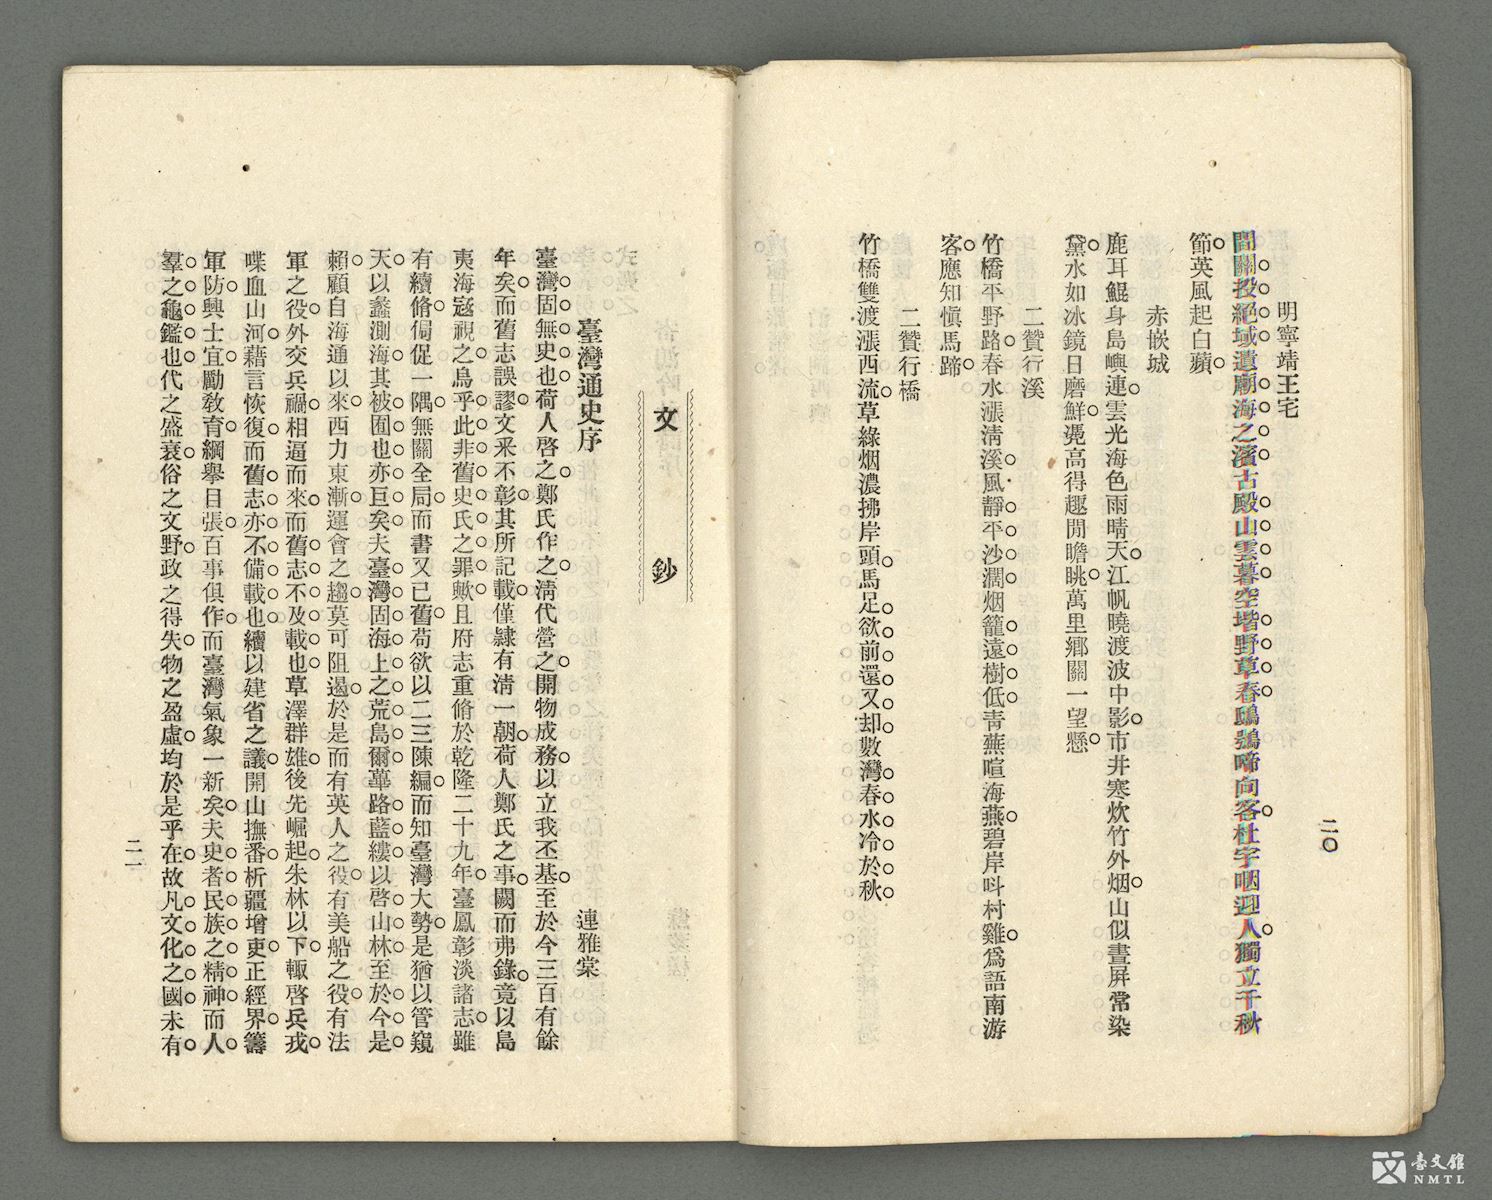 二〇
明寧靖王宅
間關投絕域遺廟海之濱古殿山雲暮空堦野草春鵂鶹啼向客杜宇咽迎人獨立千秋
節英風起白蘋
赤嵌城
鹿耳鯤身島嶼連雲光海色雨晴天江帆曉渡波中影市井寒炊竹外烟山似畫屛常染
黛水如冰鏡日磨鮮凴高得趣閒瞻眺萬里鄉關一望懸
二贊行溪
竹橋平野路春水漲淸溪風靜平沙濶烟籠遠樹低靑蕪喧海燕碧岸呌村雞爲語南游
客應知愼馬蹄
二贊行橋
竹橋雙渡漲西流草綠烟濃拂岸頭馬足欲前還又却數灣春水冷於秋
文鈔
臺灣通史序
連雅棠
臺灣固無史也荷人啓之鄭氏作之淸代營之開物成務以立我丕基至於今三百有餘
年矣而舊志誤謬文釆不彰其所記載僅隸有淸一朝荷人鄭氏之事闕而弗錄竟以島
夷海寇視之烏乎此非舊史氏之罪歟且府志重脩於乾隆二十九年臺鳳彰淡諸志雖
有續脩侷促一隅無關全局而書又已舊苟欲以二三陳編而知臺灣大勢是猶以管窺
天以蠡測海其被囿也亦巨矣夫臺灣固海上之荒島爾蓽路藍縷以啓山林至於今是
賴顧自海通以來西力東漸運會之趨莫可阻遏於是而有英人之役有美船之役有法
軍之役外交兵禍相逼而來而舊志不及載也草澤群雄後先崛起朱林以下輒啓兵戎
喋血山河藉言恢復而舊志亦不備載也續以建省之議開山撫番析疆增吏正經界籌
軍防興士宜勵敎育綱舉目張百事俱作而臺灣氣象一新矣夫史者民族之精神而人
羣之龜鑑也代之盛衰俗之文野政之得失物之盈虛均於是乎在故凡文化之國未有
二一
臺文館
NMTL